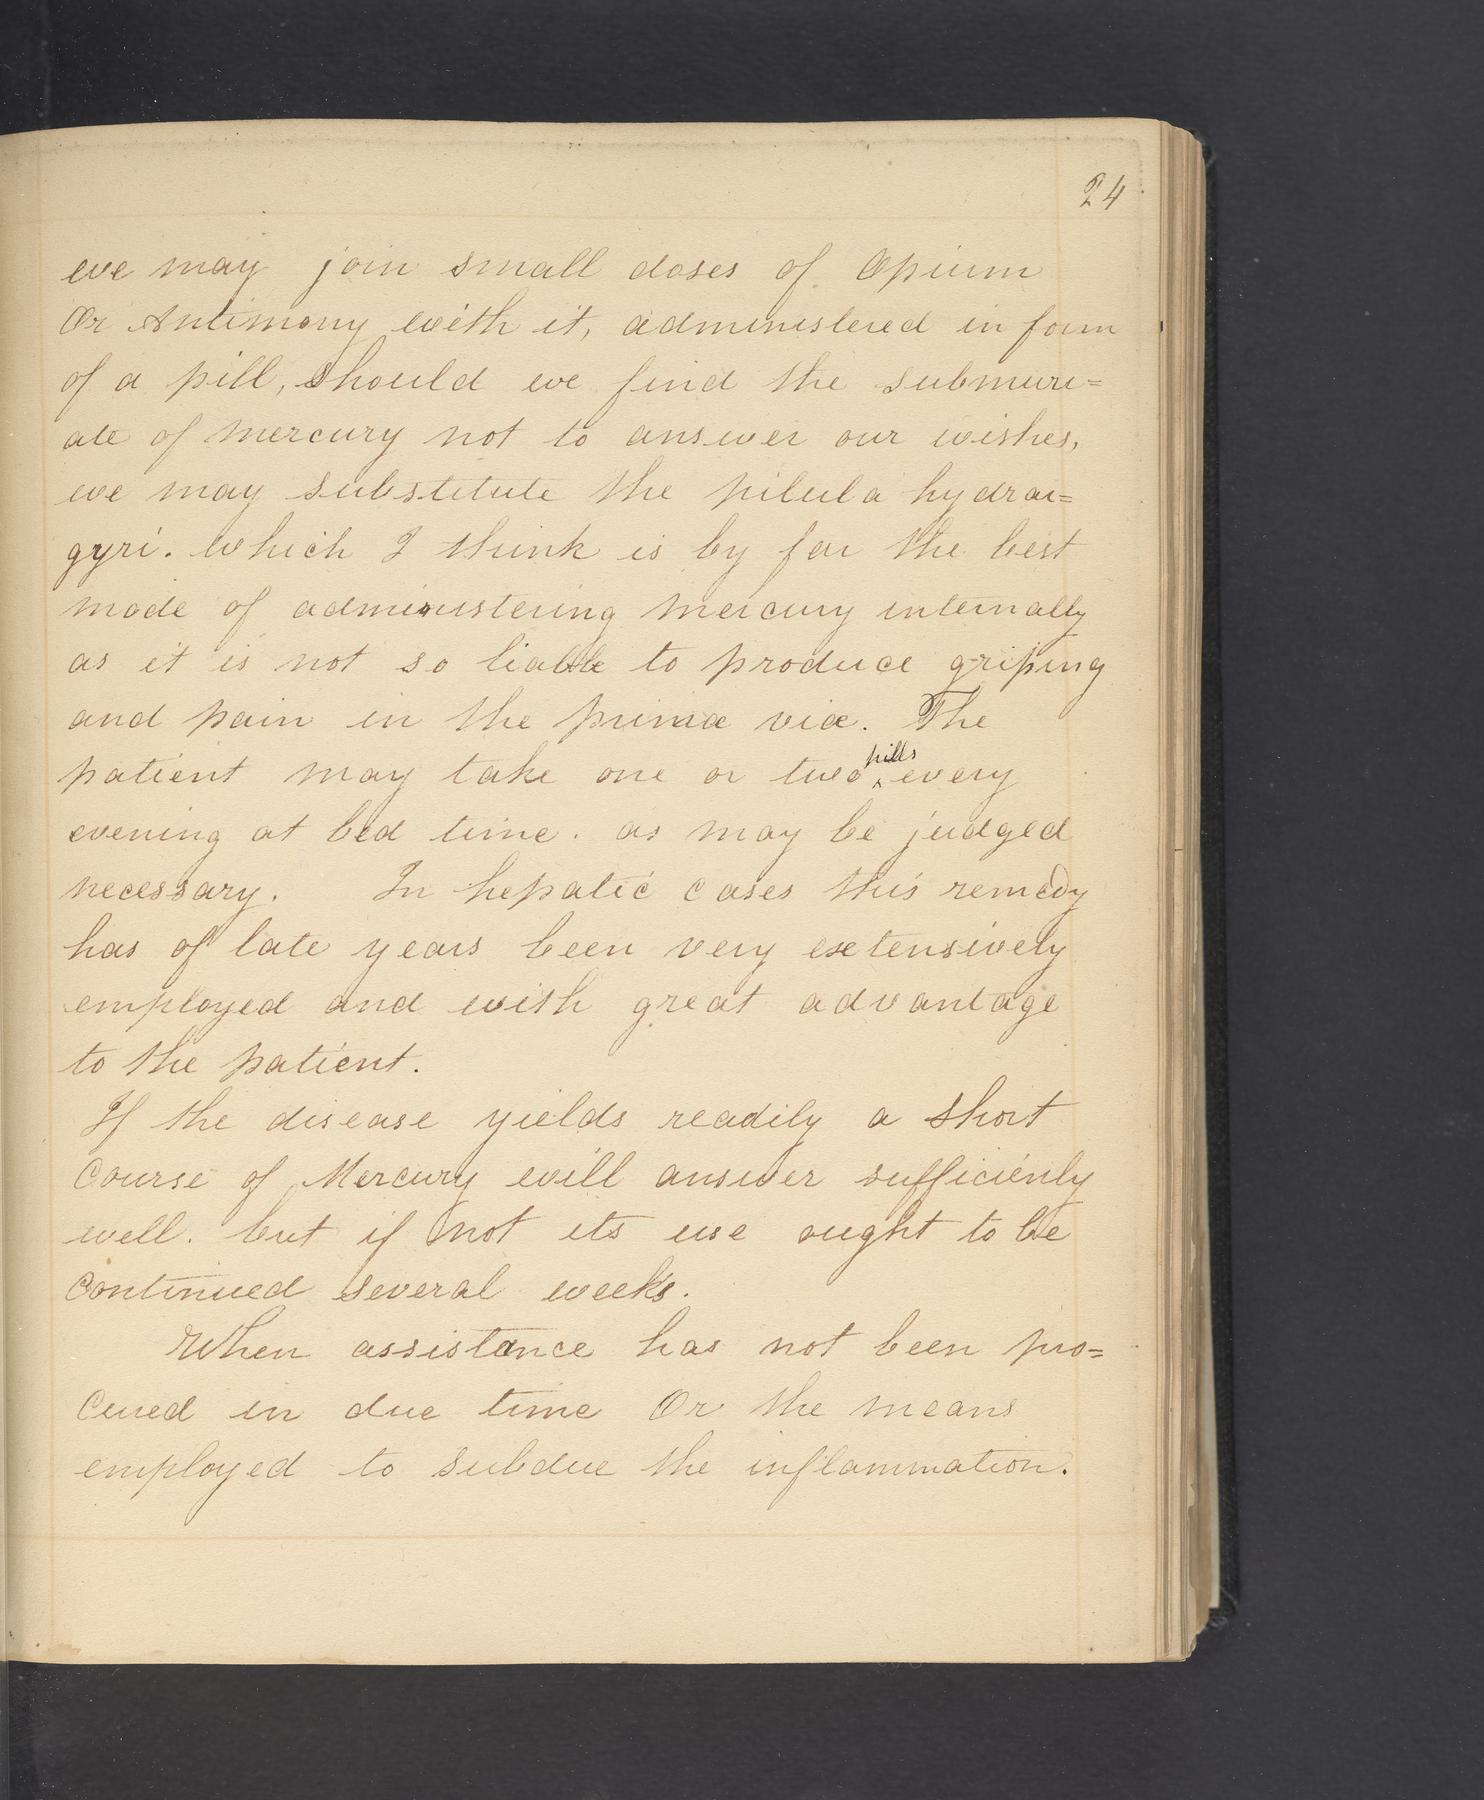 24
we may join small doses of Opium
Or Antimony with it, administered in form
of a pill, should we find the submuri=
ate of mercury not to answer our wishes,
we may substitute the pilula hydrar=
gyri. which I think is by far the best
mode of administering mercury internally
as it is not so liable to produce griping
and pain in the primæ viæ. The
patient may take one or two pills every
evening at bed time. as may be judged
necessary. In hepatic cases this remedy
has of late years been very extensively
employed and with great advantage
to the patient.
If the disease yields readily a short
Course of Mercury will answer sufficienly
well. but if not its use ought to be
Continued several weeks.
When assistance has not been pro=
Cured in due time Or the means
employed to subdue the inflammation.